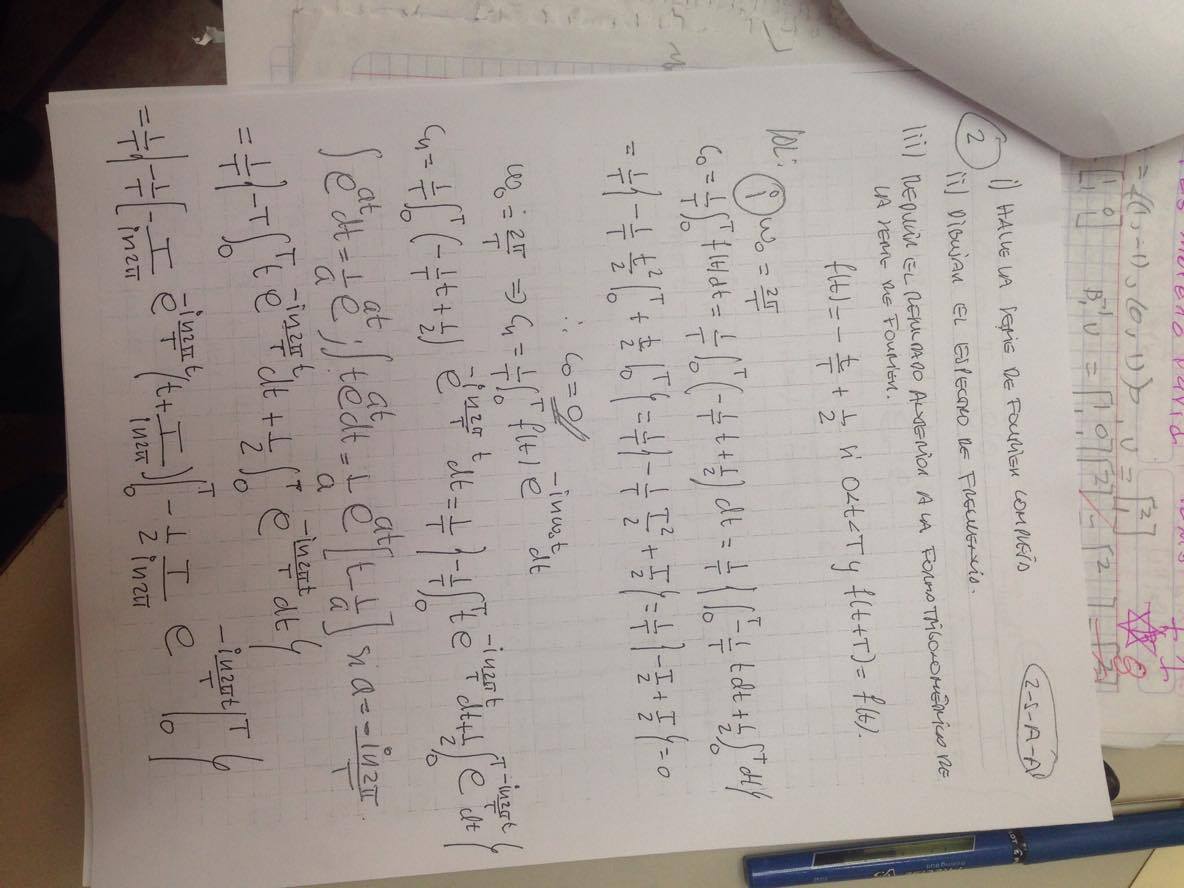 = {(1,-1), (0,1)}, U = [2 1]
[1 0 1 1] B₁⁻¹ U = [1 0] [2] = [2
2-S-A-A
2
i) HALLE LA SERIE DE FOURIER COMPLEJA
ii) DIBUJAR EL ESPECTRO DE FRECUENCIA.
iii) REDUCIR EL RESULTADO ANTERIOR A LA FORMA TRIGONOMÉTRICA DE
LA SERIE DE FOURIER.
f(t) = - t/T + 1/2 si 0<t<T y f(t+T) = f(t).
SOL:
i ω₀ = 2π/T
C₀ = 1/T ∫₀ᵀ f(t)dt = 1/T ∫₀ᵀ (-1/T t + 1/2) dt = 1/T { ∫₀ᵀ -1/T t dt + 1/2 ∫₀ᵀ dt }
= 1/T { -1/T t²/2 |₀ᵀ + t/2 |₀ᵀ } = 1/T { -1/T T²/2 + T/2 } = 1/T { -T/2 + T/2 } = 0
∴ C₀ = 0 //
ω₀ = 2π/T ⇒ Cₙ = 1/T ∫₀ᵀ f(t) e^(-inω₀t) dt
Cₙ = 1/T ∫₀ᵀ (-1/T t + 1/2) e^(-in2π/T t) dt = 1/T { -1/T ∫₀ᵀ t e^(-in2π/T t) dt + 1/2 ∫₀ᵀ e^(-in2π/T t) dt }
∫ e^(at) dt = 1/a e^(at) ; ∫ t e^(at) dt = 1/a e^(at) [t - 1/a] si a = -in2π/T .
= 1/T { -T ∫₀ᵀ t e^(-in2π/T t) dt + 1/2 ∫₀ᵀ e^(-in2πt/T) dt }
= 1/T { -1/T [ - T/in2π e^(-in2π/T t) (t + T/in2π) |₀ᵀ - 1/2 T/in2π e^(-in2πt/T) |₀ᵀ }